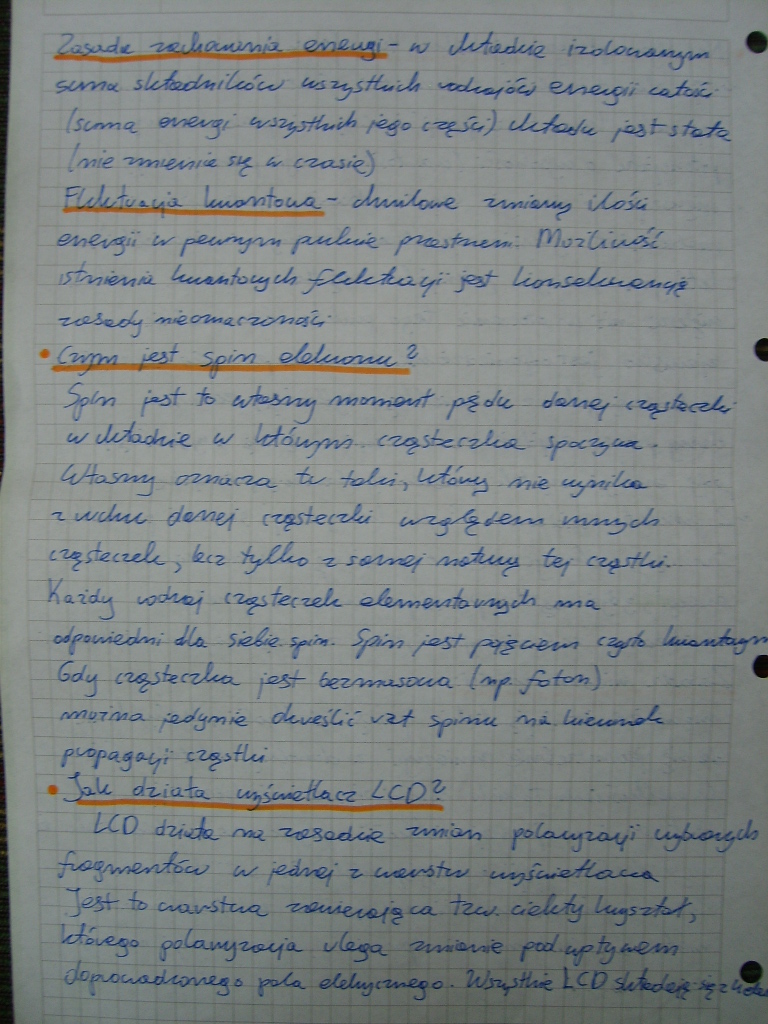 Zasada zachowania energi - w układzie izolowanym
suma składników wszystkich rodzajów energii całości
(suma energi wszystkich jego części) układu jest stała
(nie zmienia się w czasie)
Fluktuacja kwantowa - chwilowe zmiany ilości
energii w pewnym punkcie przestrzeni. Możliwość
istnienia kwantowych fluktuacji jest konsekwencją
zasady nieoznaczoności
• Czym jest spin elektronu?
Spin jest to własny moment pędu danej cząsteczki
w układzie w którym cząsteczka spoczywa.
Własny oznacza tu taki, który nie wynika
z ruchu danej cząsteczki względem innych
cząsteczek, lecz tylko z samej natury tej cząstki.
Każdy rodzaj cząsteczek elementarnych ma
odpowiedni dla siebie spin. Spin jest pojęciem czysto
Gdy cząsteczka jest bezmasowa (np. foton)
można jedynie określić rzt spinu na kierunek
propagacji cząstki
• Jak działa wyświetlacz LCD?
LCD działa na zasadzie zmian polaryzacji wybranych
fragmentów w jednej z warstw wyświetlacza
Jest to warstwa zawierająca tzw. ciekły kryształ,
którego polaryzacja ulega zmianie pod wpływem
doprowadzonego pola elektrycznego. Wszystkie LCD składają się z